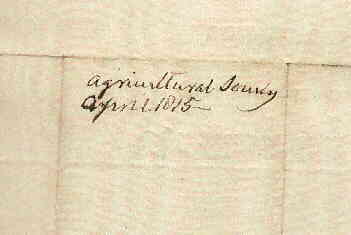 Agricultural Society
April 1815